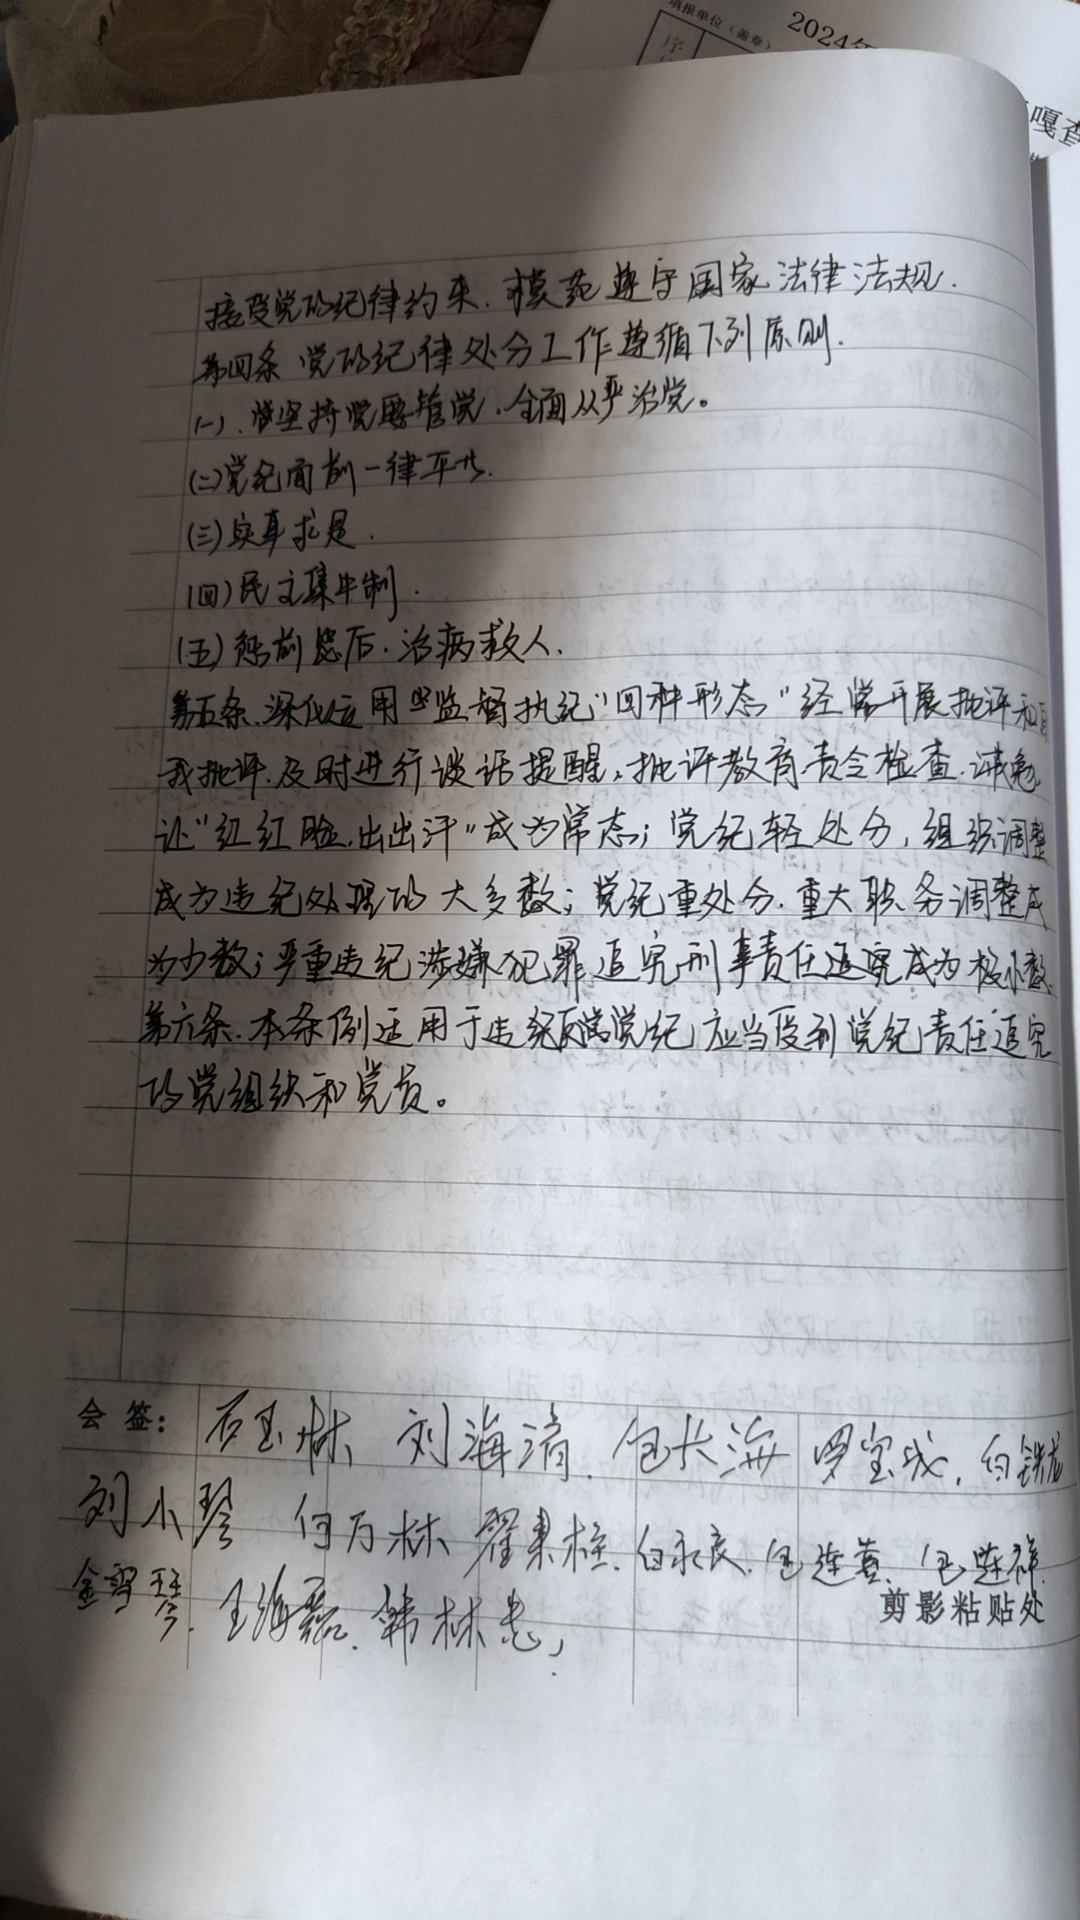 填报单位（盖章）
2024年
序
嘎查
接受党的纪律约束.模范遵守国家法律法规.
第四条 党的纪律处分工作遵循下列原则.
(一).坚持党要管党.全面从严治党。
(二)党纪面前一律平等.
(三)实事求是.
(四)民主集中制.
(五)惩前毖后.治病救人.
第五条.深化运用监督执纪"四种形态"经常开展批评和自
我批评.及时进行谈话提醒,批评教育.责令检查.诫勉
让"红红脸.出出汗"成为常态;党纪轻处分,组织调整
成为违纪处理的大多数;党纪重处分.重大职务调整成
为少数;严重违纪涉嫌犯罪追究刑事责任追究成为极小数.
第六条.本条例适用于违纪党纪应当受到党纪责任追究
的党组织和党员。
会 签: 石玉林 刘海清. 包长海 罗宝成. 白铁龙
刘小琴 何万林 翟束柱. 白永良. 包连喜. 包连祥.
金雪琴. 王海磊. 韩林忠,
剪影粘贴处